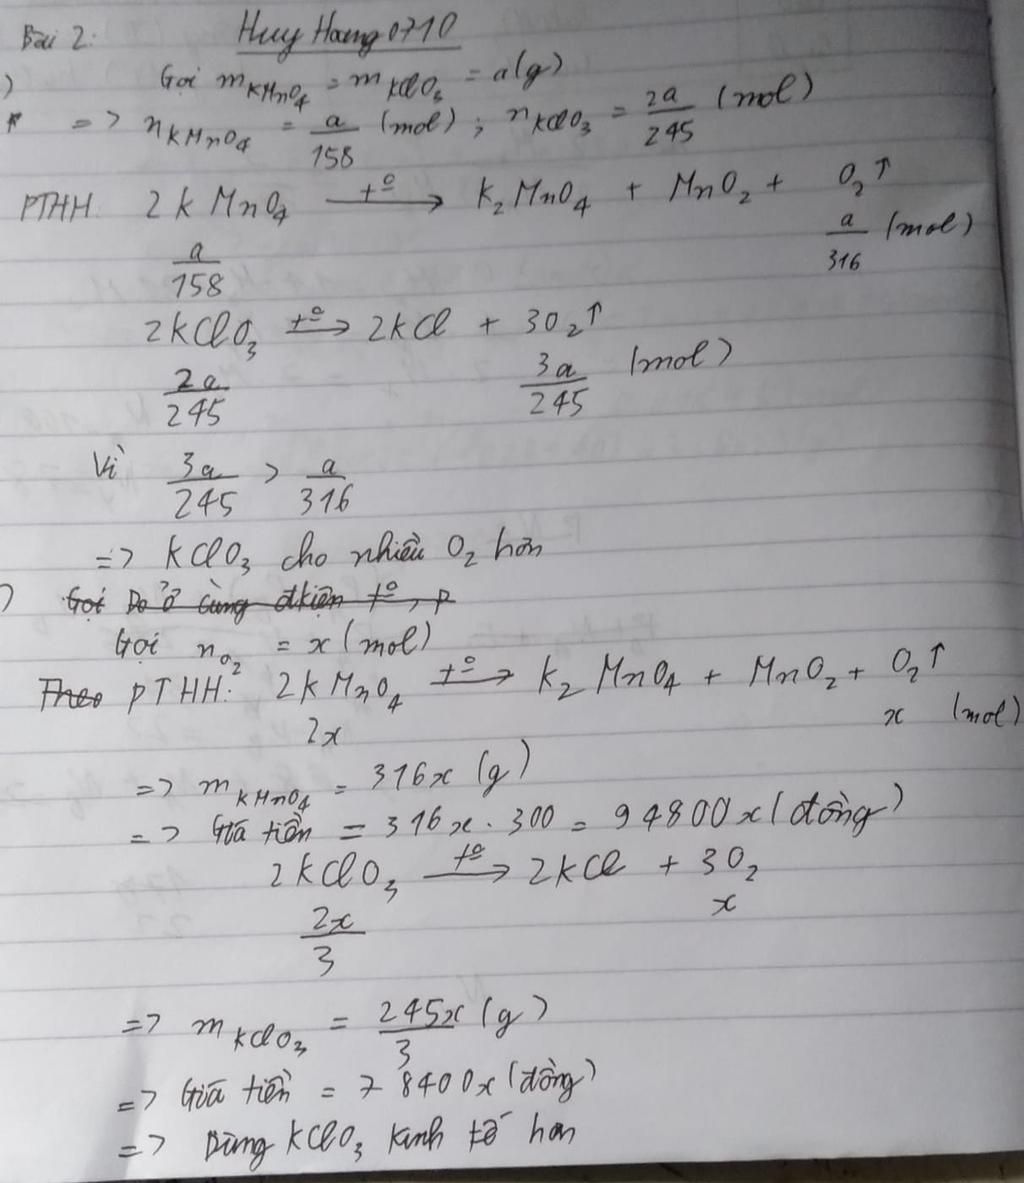 Bài 2:
Huy Hoang 0710
)
Gọi m KMnO₄ = m KClO₃ = a(g)
* => n KMnO₄ = a/158 (mol) ; n KClO₃ = 2a/245 (mol)
PTHH: 2KMnO₄ --t°--> K₂MnO₄ + MnO₂ + O₂↑
a/158 a/316 (mol)
2KClO₃ --t°--> 2KCl + 3O₂↑
2a/245 3a/245 (mol)
Vì 3a/245 > a/316
=> KClO₃ cho nhiều O₂ hơn
) Gọi Do ở cùng đkiện t°, p
Gọi n O₂ = x (mol)
Theo PTHH: 2KMnO₄ --t°--> K₂MnO₄ + MnO₂ + O₂↑
2x x (mol)
=> m KMnO₄ = 316x (g)
=> Giá tiền = 316x . 300 = 94800x (đồng)
2KClO₃ --t°--> 2KCl + 3O₂
2x/3 x
=> m KClO₃ = 245x/3 (g)
=> Giá tiền = 78400x (đồng)
=> Dùng KClO₃ kinh tế hơn